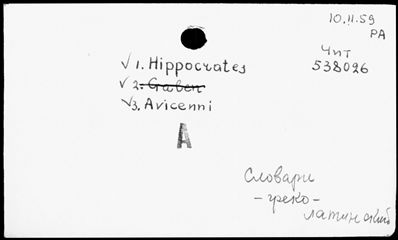 10.11.59
РА
Чит
538026
√ 1. Hippocrates
√ 2. Galen
√3. Avicenni
А
Словари
- греко -
латинский